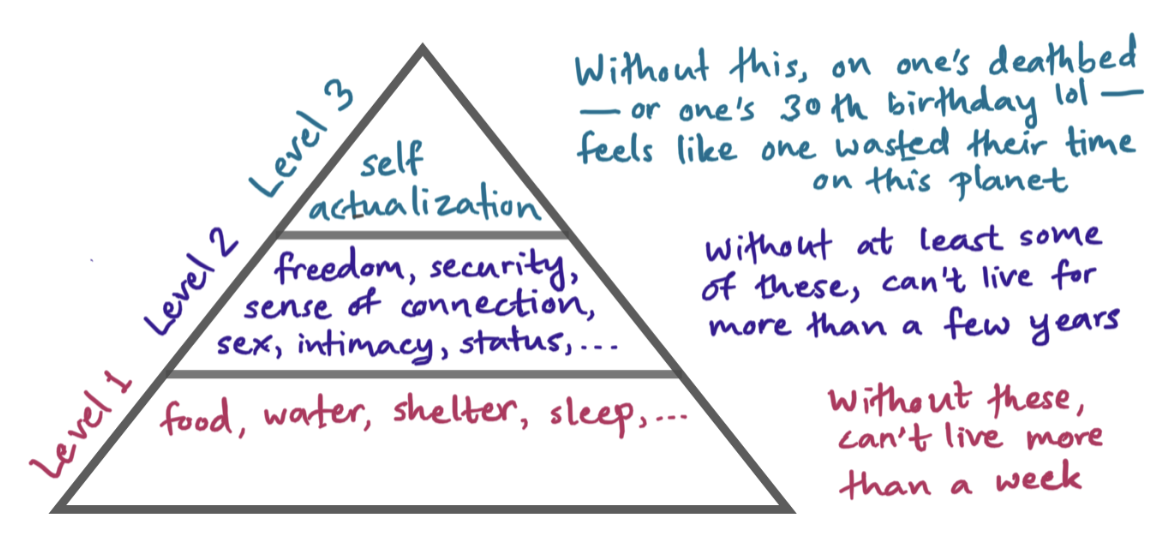 Level 3
self
actualization
Without this, on one's deathbed
— or one's 30th birthday lol —
feels like one wasted their time
on this planet
Level 2
freedom, security,
sense of connection,
sex, intimacy, status,...
without at least some
of these, can't live for
more than a few years
Level 1
food, water, shelter, sleep,...
without these,
can't live more
than a week